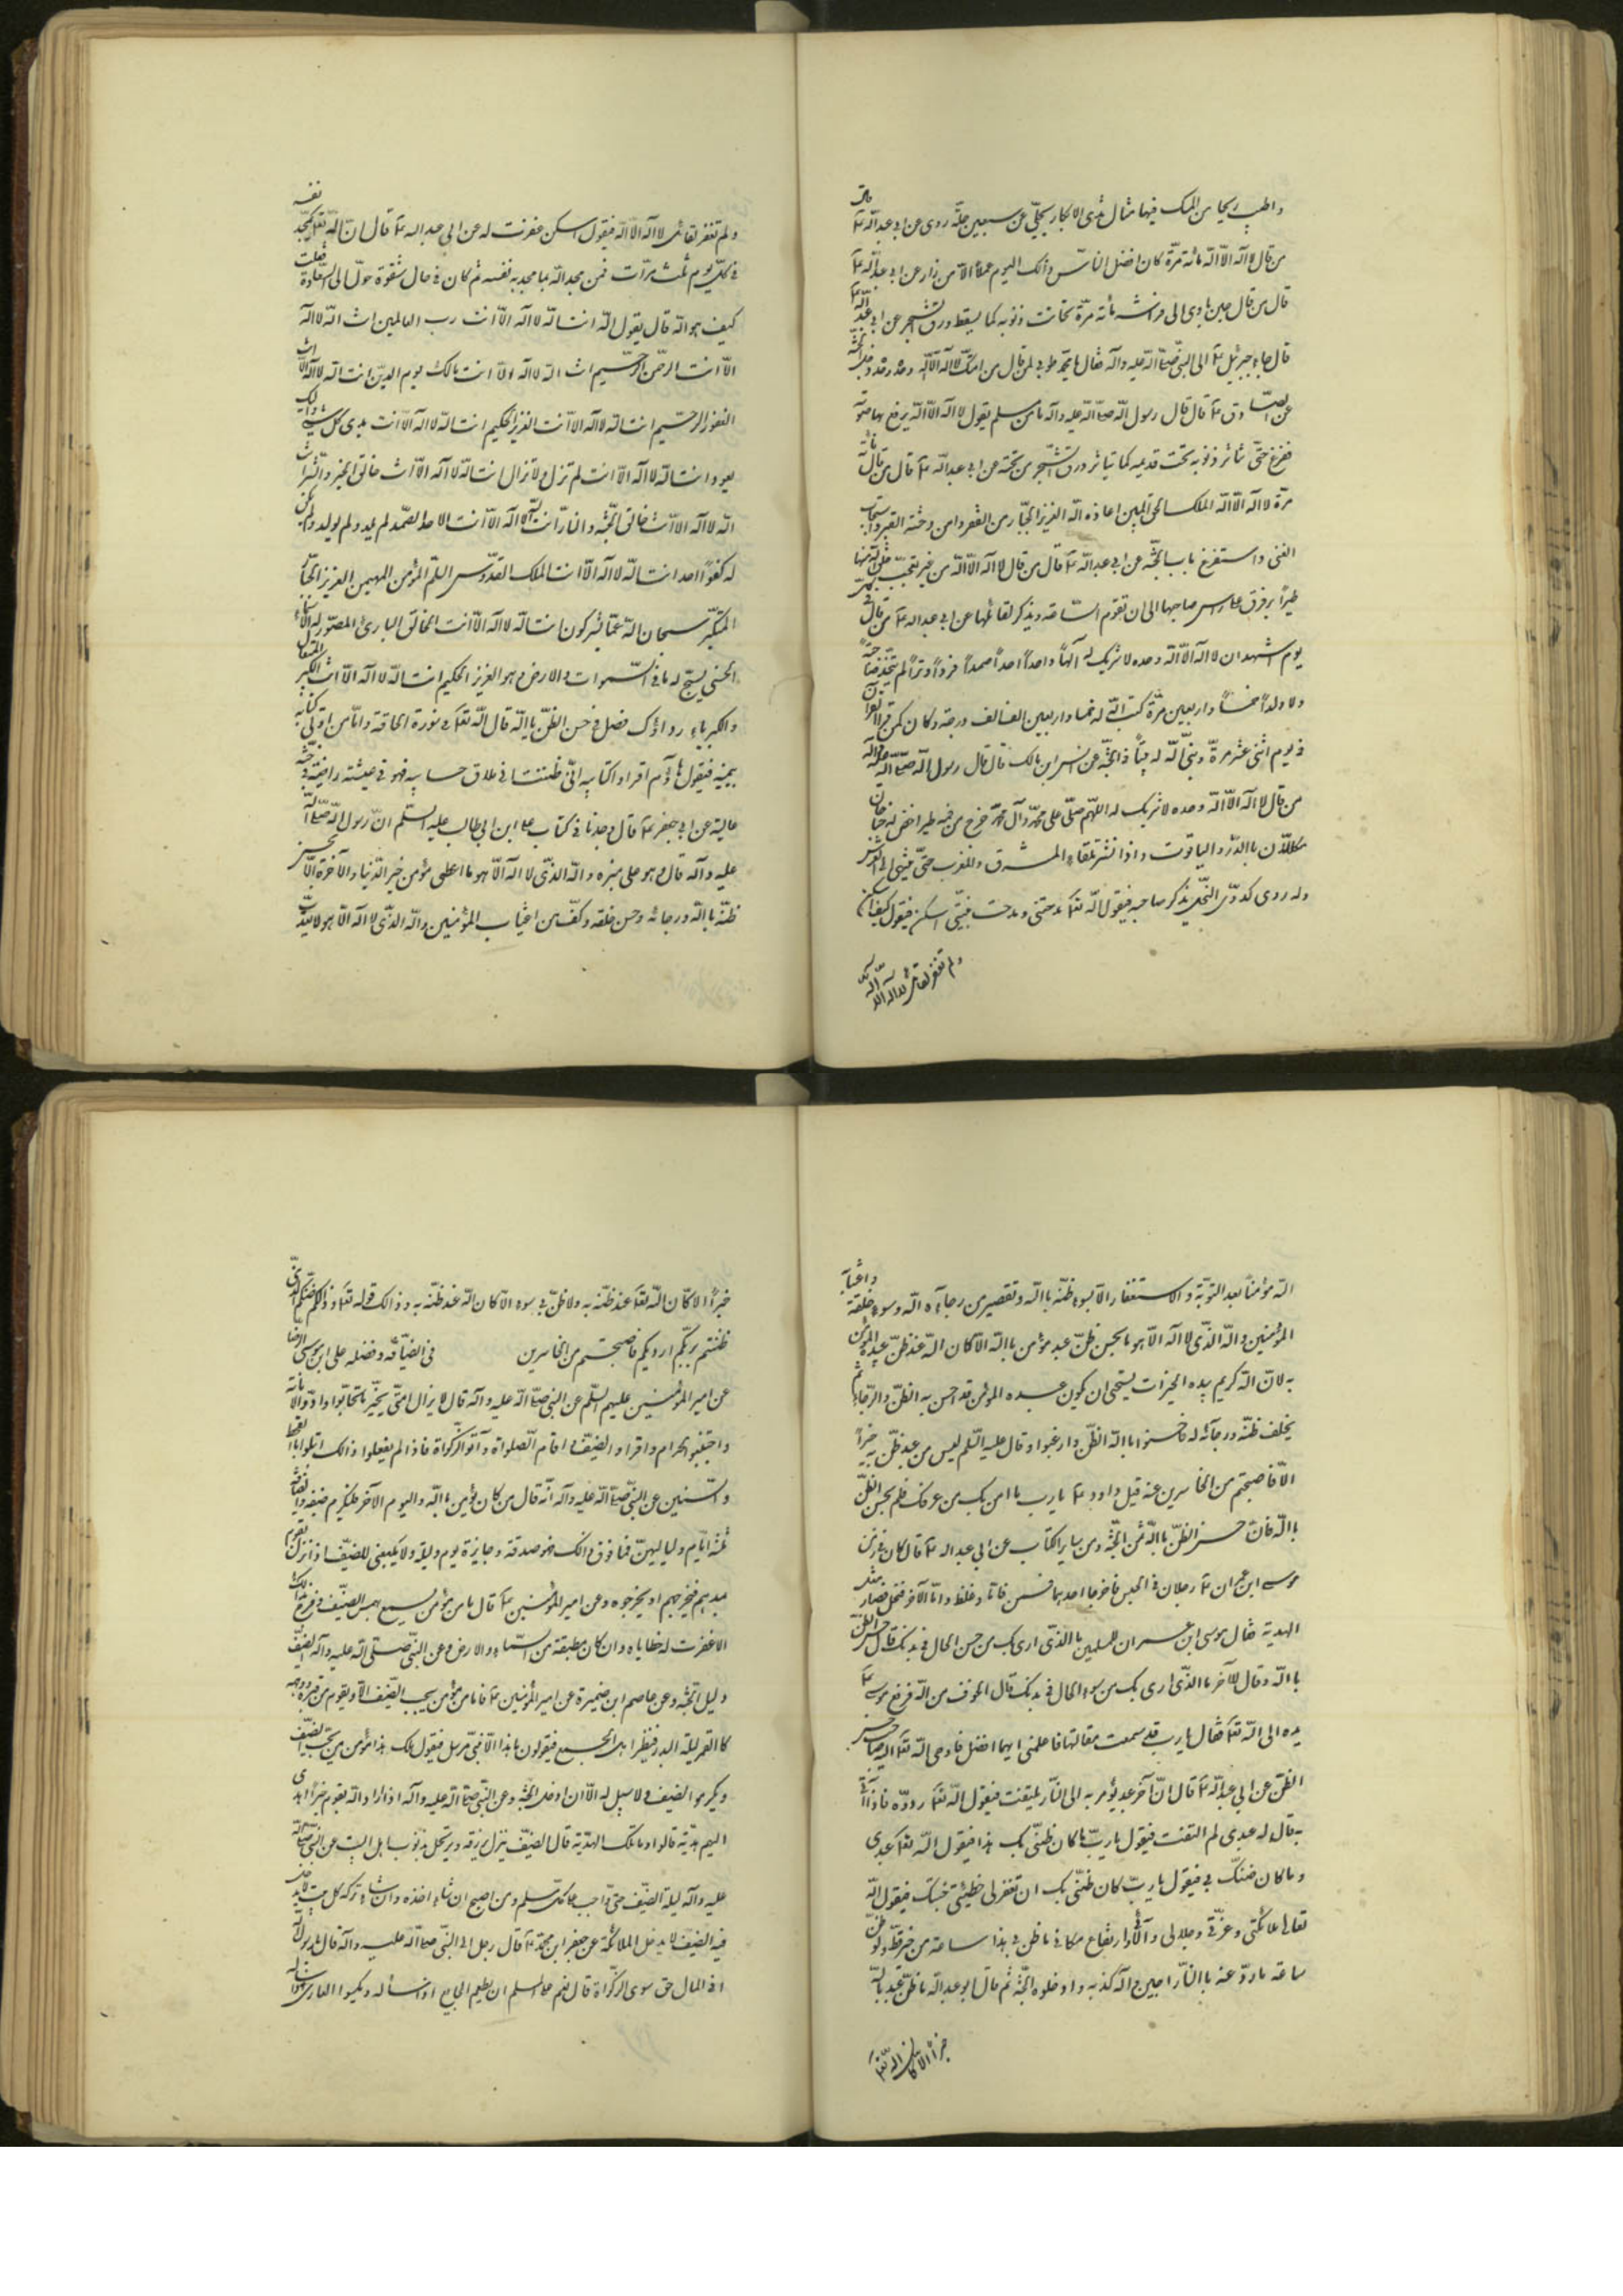 واطيب ريحا من المسك فيها مثال ثدى الابكار تجلّى عن سبعين حلّة روى عن ابي عبد الله ع
من قال لا اله الا الله مائة مرّة كان افضل الناس ذلك اليوم عملاً الا من زاد عن ابي عبد الله ع
قال من قال حين ياوى الى فراشه مائة مرّة تحاتت ذنوبه كما يسقط ورق الشجر عن ابي عبد الله ع
قال جاء جبرئيل ع الى النبي صلى الله عليه وآله فقال يا محمد طوبى لمن قال من امتك لا اله الا الله وحده وحده وحده
عن الصادق ع قال قال رسول الله صلى الله عليه وآله ما من مسلم يقول لا اله الا الله يرفع بها صوته
فيفرغ حتى تناثر ذنوبه تحت قدميه كما تناثر ورق الشجر من تحته عن ابي عبد الله ع قال من قال مائة
مرّة لا اله الا الله الملك الحق المبين اعاذه الله العزيز الجبّار من الفقر وامن وحشة القبر واستجلب
الغنى واستقرع باب الجنّة عن ابي عبد الله ع قال من قال لا اله الا الله من غير تعجّب خلق الله منها
طيراً يرفرف على راس صاحبها الى ان تقوم الساعة ويذكر لقائلها عن ابي عبد الله ع من قال في كل
يوم اشهد ان لا اله الا الله وحده لا شريك له الهاً واحداً احداً صمداً فرداً وتراً لم يتخذ صاحبة
ولا ولداً خمساً واربعين مرّة كتب الله له خمسا واربعين الف الف درجة وكان كمن قرأ القرآن
في يوم اثنى عشر مرة وبنى الله له بيتاً في الجنّة عن انس ابن مالك قال قال رسول الله صلى الله عليه وآله
من قال لا اله الا الله وحده لا شريك له اللهم صلّى على محمد وآل محمد خرج من فيه طير اخضر له جناحان
مكلّلان بالدرّ والياقوت واذا نشر بلغا المشرق والمغرب حتى ينتهى الى العرش
وله دوى كدوىّ النحل يذكر صاحبه فيقول الله تعالى مدحتنى ومدحت نبيّى اسكن فيقول كيف اسكن
ولم تغفر لقائلى لا اله الا الله
ولم تغفر لقائلى لا اله الا الله فيقول اسكن غفرت له عن ابي عبد الله ع قال ان الله تعالى يمجّد نفسه
في كل يوم ثلث مرّات فمن مجد الله بما مجد به نفسه ثم كان في حال شقوة حوّل الى السعادة فقلت
كيف هو الله قال يقول الله انت الله لا اله الا انت رب العالمين انت الله لا اله
الا انت الرحمن الرحيم انت الله لا اله الا انت مالك يوم الدين انت الله لا اله الا انت
الغفور الرحيم انت الله لا اله الا انت العزيز الحكيم انت الله لا اله الا انت بدى كل شيء واليك
يعود انت الله لا اله الا انت لم تزل ولا تزال انت الله لا اله الا انت خالق الخير والشر انت
الله لا اله الا انت خالق الجنة والنار انت الله لا اله الا انت الاحد الصمد لم يلد ولم يولد ولم يكن
له كفواً احد انت الله لا اله الا انت الملك القدّوس السلم المؤمن المهيمن العزيز الجبّار
المتكبّر سبحان الله عمّا يشركون انت الله لا اله الا انت الخالق البارئ المصوّر له الاسماء
الحسنى يسبح له ما في السموات والارض وهو العزيز الحكيم انت الله لا اله الا انت الكبير المتعال
والكبرياء رداؤك فضل في حسن الظنّ بالله قال الله تعالى في سورة الحاقة وامّا من اوتى كتابه
بيمينه فيقول هاؤم اقراوا كتابيه انّى ظننت انى ملاق حسابيه فهو في عيشة راضية في جنّة
عالية عن ابي جعفر ع قال وجدنا في كتاب على ابن ابي طالب عليه السلم انّ رسول الله صلى الله
عليه وآله قال وهو على منبره والله الذى لا اله الا هو ما اعطى مؤمن خير الدنيا والآخرة الا بحسن
ظنّه بالله ورجائه وحسن خلقه وكفّ من اغتياب المؤمنين والله الذى لا اله الا هو لا يعذّب
الله مؤمناً بعد التوبة والاستغفار الا بسوء ظنّه بالله وتقصير من رجائه الله وسوء خلقه واغتياب
المؤمنين والله الذى لا اله الا هو ما يحسن ظنّ عبد مؤمن بالله الا كان الله عند ظنّ عبده المؤمن
به لان الله كريم بيده الخيرات يستحي ان يكون عبده المؤمن قد احسن به الظنّ والرجاء ثم
يخلف ظنّه ورجائه له فاحسنوا بالله الظنّ وارغبوا وقال عليه السلم ليس من عبد ظنّ به خيراً
الا فاصبحتم من الخاسرين عنه قيل داود ع يا رب ما امن بك من عرفك فلم يحسن الظنّ
بالله فانّ حسن الظنّ بالله ثمن الجنّة ومن ساير الكتاب عن ابي عبد الله ع قال كان في زمن
موسى ابن عمران ع رجلان في الحبس فاخرجا احدهما فسمن وغلظ وامّا الآخر فنحل فصار مثل
الهدبة فقال موسى ابن عمران للسمين ما الذى ارى بك من حسن الحال في بدنك قال حسن الظنّ
بالله وقال للآخر ما الذى ارى بك من سوء الحال في بدنك قال الخوف من الله فرفع موسى ع
يده الى الله تعالى فقال يا رب قد سمعت مقالتهما فاعلمنى ايهما افضل فاوحى الله تعالى اليه صاحب حسن
الظنّ عن ابي عبد الله ع قال انّ آخر عبد يؤمر به الى النار يلتفت فيقول الله تعالى ردّوه فاذا أتى
به قال له عبدى لم التفت فيقول يا ربّ ما كان ظنّى بك هذا فيقول الله تعالى عبدى
وما كان ظنك بي فيقول يا ربّ كان ظنّى بك ان تغفر لى خطيئتى وتسكننى جنتك فيقول الله
تعالى ملائكتى وعزّتى وجلالى وآلائى وارتفاع مكانى ما ظن بي هذا ساعة من خير قطّ ولو ظن
ساعة ما روّعته بالنار اجيزوا له كذبه وادخلوه الجنّة ثم قال ابو عبد الله ما ظنّ عبد بالله
خيراً الا كان الله تعالى
خيراً الا كان الله تعالى عند ظنّه به ولا ظنّ به سوء الا كان الله عند ظنّه به وذالك قوله تعالى وذلكم ظنّكم الذى
ظننتم بربّكم ارديكم فاصبحتم من الخاسرين في الضيافة وفضله على ابن موسى الرضا
عن امير المؤمنين عليهم السلم عن النبي صلى الله عليه وآله قال لا يزال امتى بخير ما تحابّوا وادّوا الامانة
واجتنبوا الحرام واقراوا الضيف واقام الصلواة وآتوا الزكواة فاذا لم يفعلوا ذالك ابتلوا بالقحط
والسنين عن النبي صلى الله عليه وآله انه قال من كان يؤمن بالله واليوم الآخر فليكرم ضيفه والضيافة
ثلثة ايّام ولياليهنّ فما فوق ذالك فهو صدقة وجايزة يوم وليلة ولا ينبغى للضيف اذا نزل بقوم
يملهم فيخرجهم او يخرجوه وعن امير المؤمنين ع قال ما من مؤمن يسمع بهمس الضيف ففرح بذالك
الا غفرت له خطاياه وان كان مطبقة من السماء والارض وعن النبي صلى الله عليه وآله الضيف
دليل الجنّة وعن عاصم ابن ضميرة عن امير المؤمنين ع قال ما من مؤمن يحب الضيف الا ويقوم من قبره ووجهه
كالقمر ليلة البدر فينظر اهل الجمع فيقولون ما هذا الا نبيّ مرسل فيقول ملك هذا مؤمن من يحبّ الضيف
ويكرم الضيف ولا سبيل له الا ان ادخل الجنّة وعن النبي صلى الله عليه وآله اذا اراد الله بقوم خيراً اهدى
اليهم هديّة قالوا وما تلك الهديّة قال الضيف ينزل برزقه ويرتحل بذنوب اهل البيت عن النبي صلى الله
عليه وآله ليلة الضيف حق واجب على كل مسلم ومن اصبح ان شاء اخذه وان شاء تركه كل بيت لا يدخل
فيه الضيف لا يدخل الملائكة عن جعفر ابن محمد ع قال رجل الى النبي صلى الله عليه وآله قال يا رسول الله
افي المال حق سوى الزكواة قال نعم على المسلم ان يطعم الجايع اذا سأله ويكسوا العارى اذا سأله